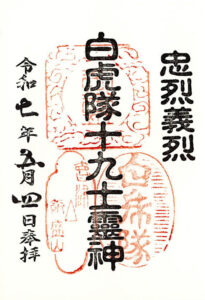 忠烈義烈
白虎隊十九士霊神
令和七年五月四日奉拝
白虎隊
飯盛山